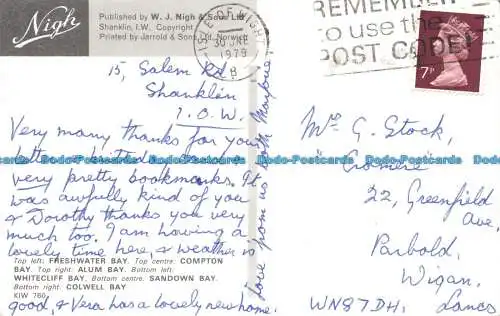 Nigh
Published by W. J. Nigh & Sons, Ltd.
Shanklin, I.W. Copyright
Printed by Jarrold & Sons Ltd, Norwich
ISLE OF WIGHT
30 JNE
1979
B
REMEMBER
to use the
POST CODE
7P
15, Salem Rd
Shanklin
I.O.W.
Very many thanks for your
letter
very pretty bookmarks. It
was awfully kind of you
& Dorothy thanks you very
much too. I am having a
lovely time here & weather is
Top left: FRESHWATER BAY. Top centre: COMPTON
BAY. Top right: ALUM BAY. Bottom left:
WHITECLIFF BAY. Bottom centre: SANDOWN BAY.
Bottom right: COLWELL BAY
KIW 760
good, & Vera has a lovely new home.
Love from us both
Mrs G. Stock,
Cromere
22, Greenfield
Ave,
Parbold,
Wigan,
WN87DH, Lancs
Dodo-Postcards Dodo-Postcards Dodo-Postcards Dodo-Postcards
Dodo-Postcards Dodo-Postcards Dodo-Postcards Dodo-Postcards